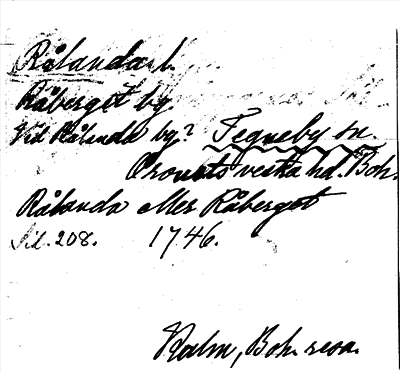 Rålanda l.
Råberget by.
Vid Rålanda by? Tegneby sn.
Orousts vestra hd. Boh.
Rålanda eller Råberget
Sid. 208. 1746.
Kalm, Boh. resa.